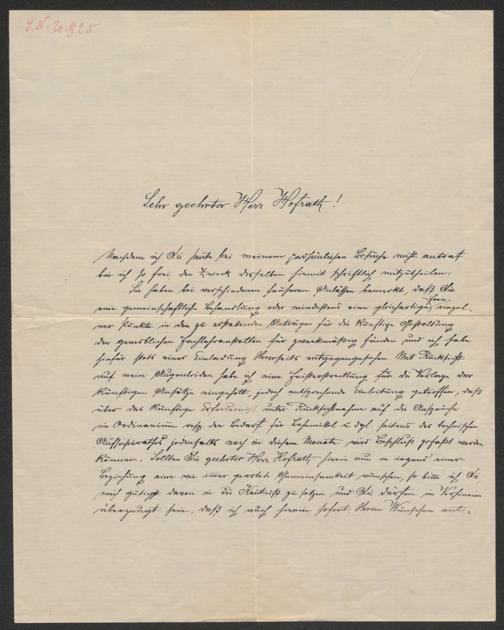 J. N. 20.925
Sehr geehrter Herr Hofrath!
Nachdem ich Sie heute bei meinem persönlichen Besuche nicht antraf
bin ich so frei den Zweck desselben hiemit schriftlich mitzutheilen:
Sie haben bei verschiedenen früheren Anlässen bemerkt, daß Sie
eine gemeinschaftliche Behandlung oder mindestens eine gleichartige einzel-
ner Punkte in den zu erstattenden Anträgen für die künftige Gestaltung
der gewerblichen Fachlehranstalten für zweckmäßig fänden und ich habe
hiefür stets einer Einladung Ihrerseits entgegengesehen. Mit Rücksicht
auf mein Augenleiden habe ich eine Fristerstreckung für die Vorlage der
künftigen Ansätze eingeholt, jedoch entsprechende Einleitung getroffen, daß
über das künftige Erforderniß unter Rücksichtnahme auf die Ansprüche
im Ordinarium resp. der Bedarf für Lehrmittel u. dgl. seitens des technischen
Aufsichtsrathes jedenfalls noch in diesem Monate der Beschluß gefaßt werden
können. Sollten Sie geehrter Herr Hofrath hierin nun in irgend einer
Beziehung eine wie immer geartete Gemeinsamkeit wünschen, so bitte ich Sie
mich gütigst davon in die Kenntniß zu setzen und Sie dürfen im Vorhinein
überzeugt sein, daß ich auch hierin sofort Ihren Wünschen ent-